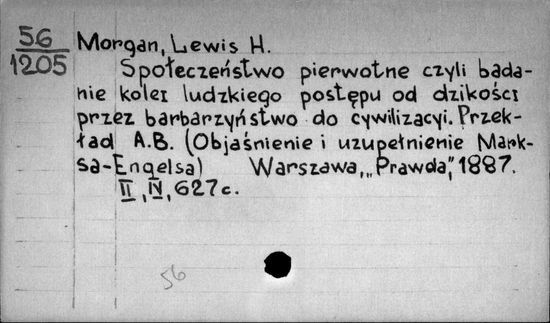 56
1205
Morgan, Lewis H.
Społeczeństwo pierwotne czyli bada-
nie kolei ludzkiego postępu od dzikości
przez barbarzyństwo do cywilizacyi. Przek-
ład A.B. (Objaśnienie i uzupełnienie Mark-
sa-Engelsa) Warszawa, „Prawda", 1887.
II, IV, 627 c.
56